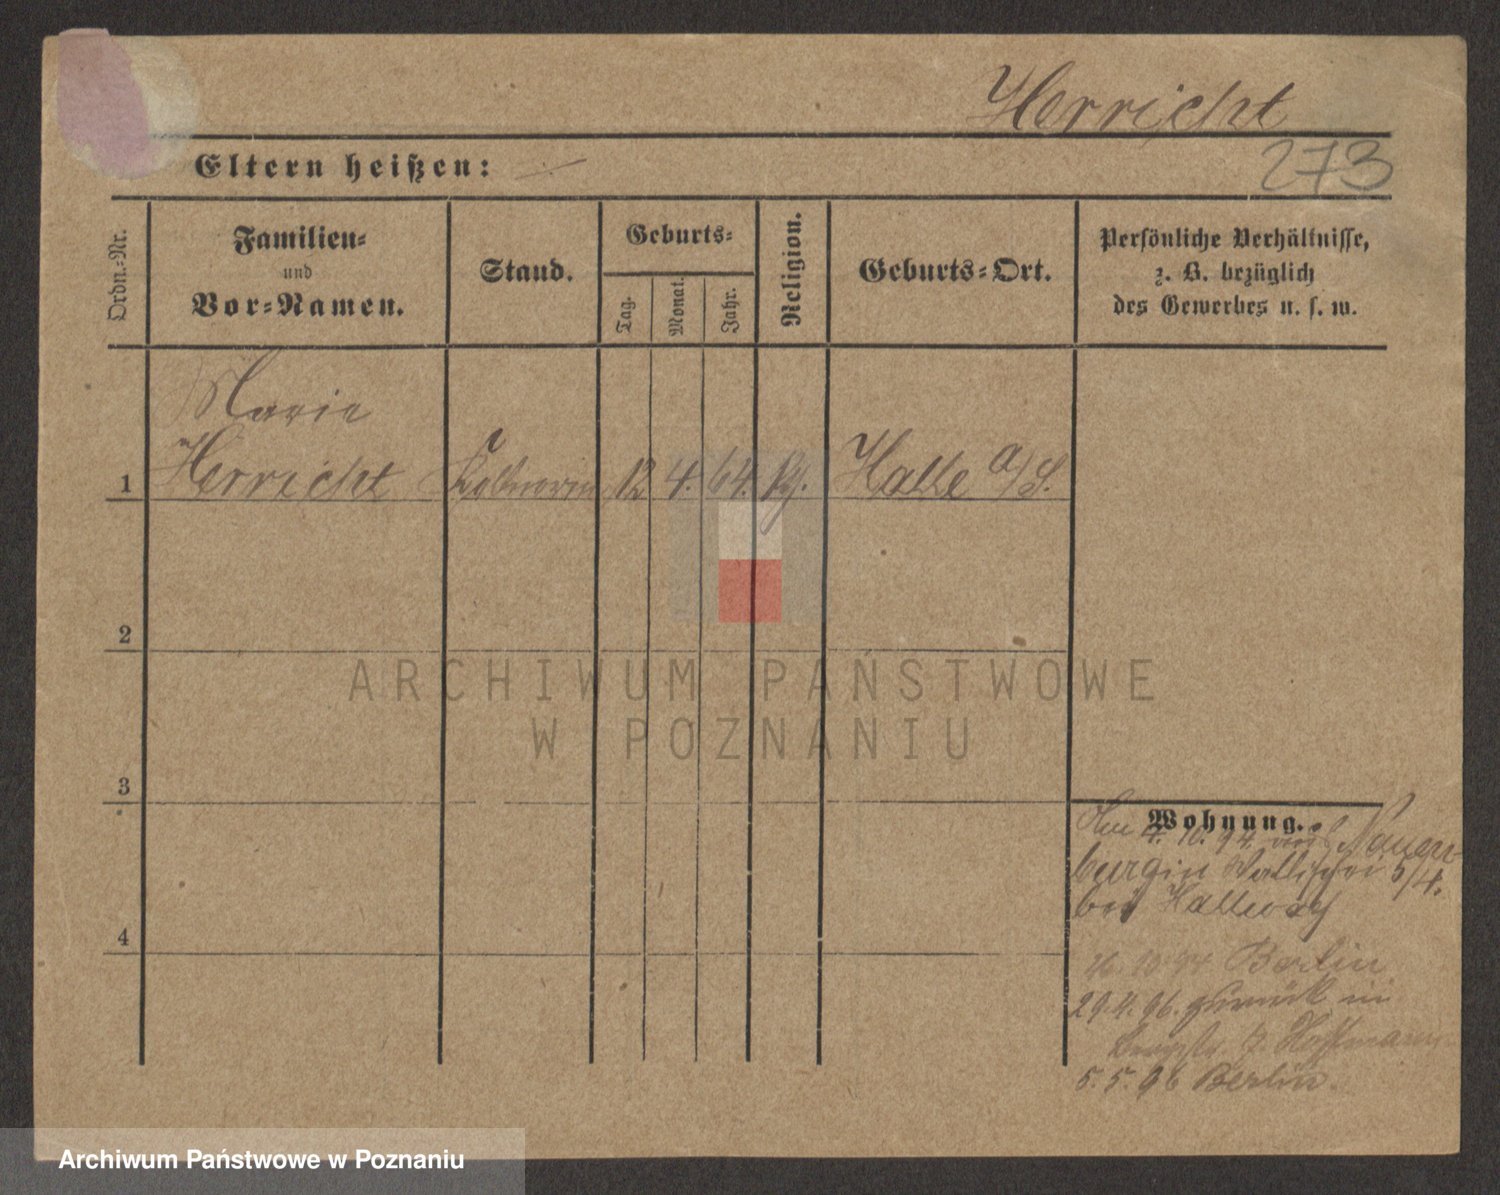 Herricht
273
Eltern heißen: —
Ordn.-Nr.
Familien-
und
Vor-Namen.
Stand.
Geburts-
Tag.
Monat.
Jahr.
Religion.
Geburts-Ort.
Persönliche Verhältnisse,
z. B. bezüglich
des Gewerbes u. s. w.
Marie
1 Herricht Kellnerin 12 4. 64. Halle a/S.
2
3
4
Wohnung.
Am 4. 10. 94 Nauen-
burg in Wallischei 5/4.
bei
10 94 Berlin
29.4.96. zurück in
Hoffmann
5.5.96 Berlin.
ARCHIWUM PAŃSTWOWE
W POZNANIU
Archiwum Państwowe w Poznaniu